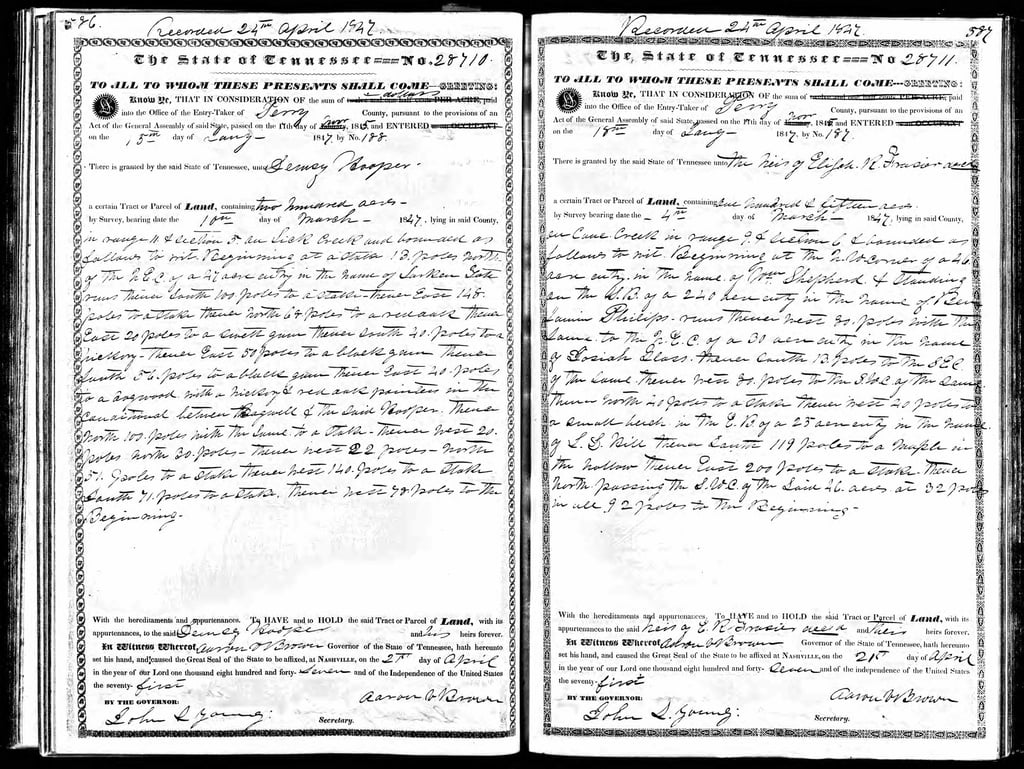 586.
Recorded 24th April 1847.
The State of Tennessee No. 28710.
TO ALL TO WHOM THESE PRESENTS SHALL COME—GREETING:
Know Ye, THAT IN CONSIDERATION OF the sum of dollars PER ACRE, paid
into the Office of the Entry-Taker of Perry County, pursuant to the provisions of an
Act of the General Assembly of said State, passed on the 17th day of Nov and ENTERED OCCUPANT
on the 15th day of Jany 1847, by No. 188.
There is granted by the said State of Tennessee, unto Demsy Hooper.
a certain Tract or Parcel of Land, containing two hundred acres
by Survey, bearing date the 10th day of March 1847, lying in said County,
in range 11 & section 5 on Lick Creek and bounded as
follows to wit. Beginning at a stake 13 poles north
of the N.E.C. of a 47 acre entry in the name of
runs thence South 100 poles to a stake thence East 148
poles to a stake thence north 68 poles to a red oak thence
East 20 poles to a gum thence south 40 poles to a
hickory thence East 50 poles to a black gum thence
South 56 poles to a black gum thence East 40 poles
to a dogwood with a hickory & red oak pointers in the
Conditional between & the said Hooper. Thence
North 100 poles with the same to a stake thence west 20
poles north 30 poles thence west 22 poles north
51 poles to a stake thence west 140 poles to a stake
South 71 poles to a stake thence west 78 poles to the
Beginning.
With the hereditaments and appurtenances. To HAVE and to HOLD the said Tract or Parcel of Land, with its
appurtenances, to the said Demsey Hooper and his heirs forever.
In Witness Whereof, Aaron V Brown Governor of the State of Tennessee, hath hereunto
set his hand, and caused the Great Seal of the State to be affixed, at NASHVILLE, on the day of April
in the year of our Lord one thousand eight hundred and forty-Seven and of the Independence of the United States
the seventy-first
BY THE GOVERNOR: Aaron V Brown
John S. Young: Secretary.
587
Recorded 24th April 1847.
The State of Tennessee No. 28711.
TO ALL TO WHOM THESE PRESENTS SHALL COME—GREETING:
Know Ye, THAT IN CONSIDERATION OF the sum of PER ACRE, paid
into the Office of the Entry-Taker of Perry County, pursuant to the provisions of an
Act of the General Assembly of said State, passed on the 17th day of Nov and ENTERED OCCUPANT
on the 18th day of Jany 1847, by No. 187.
There is granted by the said State of Tennessee unto The heirs of Elijah R. Frasior decd
a certain Tract or Parcel of Land, containing One hundred & fifteen acres
by Survey, bearing date the 4th day of March 1847, lying in said County,
on Cane Creek in range 9 & section 6 & bounded as
follows to wit. Beginning at the N.W. Corner of a 46
acre entry in the name of Wm Shepherd & Standing
on the S.B. of a 240 acre entry in the name of
Philips. runs thence west 30 poles with the
same to the of a 30 acre entry in the name
of Josiah Glass. thence South 13 poles to the S.E.C.
of the same thence west 30 poles to the S.W.C. of the same
thence north 40 poles to a stake thence west 40 poles to
a small beech in the E.B. of a 25 acre entry in the name
of thence South 119 poles to a maple in
the hollow thence East 200 poles to a stake thence
North passing the S.W.C. of the said 46 acres at 32 poles
in all 92 poles to the Beginning
With the hereditaments and appurtenances. To HAVE and to HOLD the said Tract or Parcel of Land, with its
appurtenances to the said heirs of E. R. Frasier decd and their heirs forever.
In Witness Whereof, Aaron V Brown Governor of the State of Tennessee, hath hereunto
set his hand, and caused the Great Seal of the State to be affixed at NASHVILLE, on the 21st day of April
in the year of our Lord one thousand eight hundred and forty-Seven and of the independence of the United States
the seventy-first
BY THE GOVERNOR: Aaron V Brown
John S. Young: Secretary.